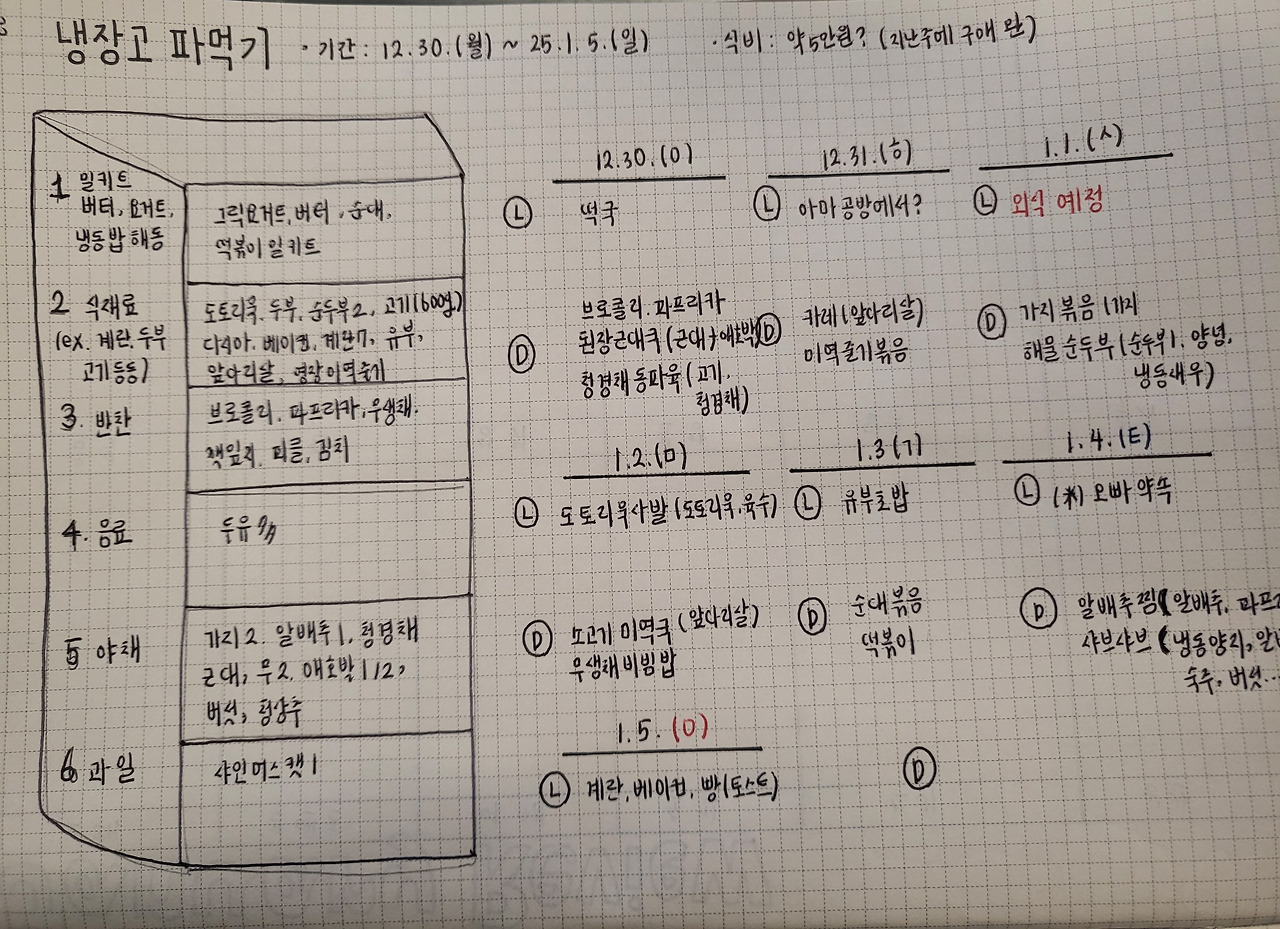 냉장고 파먹기 · 기간: 12.30.(월) ~ 25.1.5.(일) · 식비: 약5만원? (지난주에 구매 완)
1 밀키트
버터, 요거트,
냉동밥 해동
그릭요거트, 버터, 순대,
떡볶이 밀키트
2 식재료
(ex. 계란, 두부
고기 등등)
도토리묵, 두부, 순두부2, 고기(600g)
베이컨, 계란7, 유부,
앞다리살, 염장미역줄기
3. 반찬
브로콜리, 파프리카, 무생채,
깻잎지, 피클, 김치
4. 음료
두유
5 야채
가지2, 알배추1, 청경채
근대, 무2, 애호박 1/2,
버섯, 청상추
6 과일
샤인머스캣 1
12.30.(월)
Ⓛ 떡국
Ⓓ 브로콜리, 파프리카
된장근대국 (근대+애호박)
청경채 동파육 (고기,
청경채)
12.31.(화)
Ⓛ 아마 공방에서?
Ⓓ 카레 (앞다리살)
미역줄기볶음
1.1.(수)
Ⓛ 외식 예정
Ⓓ 가지 볶음 (가지
해물 순두부 (순두부1, 양념,
냉동새우)
1.2.(목)
Ⓛ 도토리묵사발 (도토리묵, 육수)
Ⓓ 소고기 미역국 (앞다리살)
무생채 비빔밥
1.3(금)
Ⓛ 유부초밥
Ⓓ 순대볶음
떡볶이
1.4.(토)
Ⓛ (*) 오빠 약속
Ⓓ 알배추찜 (알배추, 파프
샤브샤브 (냉동양지, 알
숙주, 버섯...
1.5.(일)
Ⓛ 계란, 베이컨, 빵 (토스트)
Ⓓ